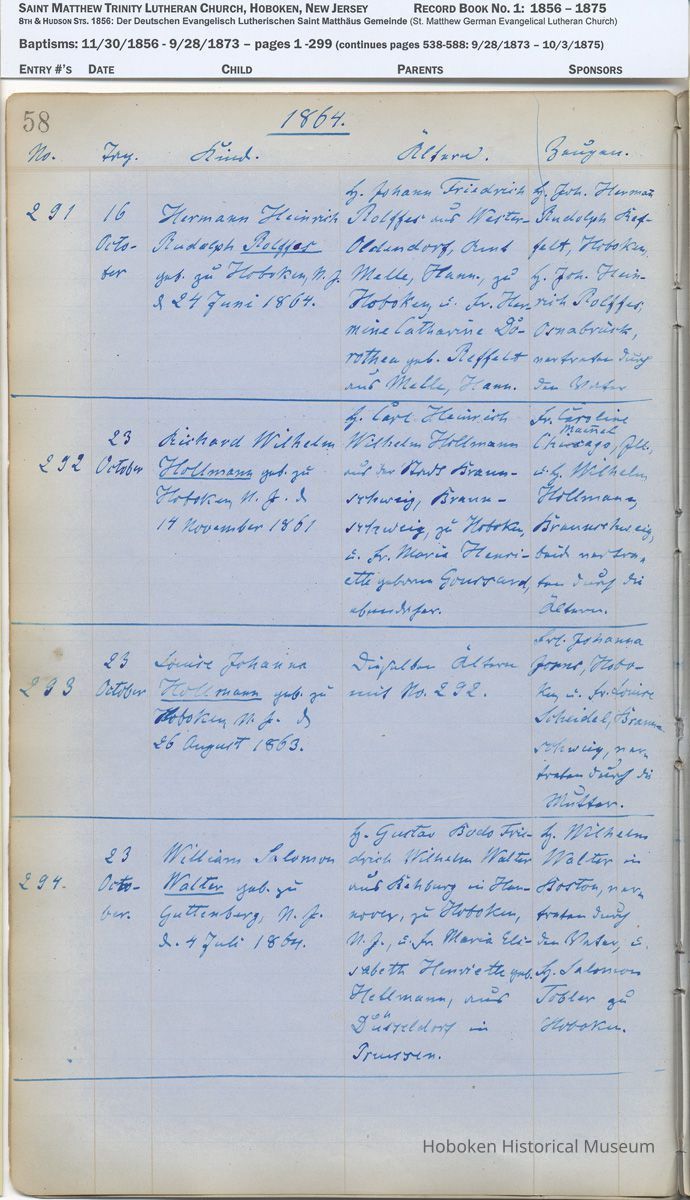 SAINT MATTHEW TRINITY LUTHERAN CHURCH, HOBOKEN, NEW JERSEY RECORD BOOK NO. 1: 1856 – 1875
8TH & HUDSON STS. 1856: Der Deutschen Evangelisch Lutherischen Saint Matthäus Gemeinde (St. Matthew German Evangelical Lutheran Church)
Baptisms: 11/30/1856 - 9/28/1873 – pages 1 -299 (continues pages 538-588: 9/28/1873 – 10/3/1875)
ENTRY #'S DATE CHILD PARENTS SPONSORS
58 1864.
No. Tag. Kind. Ältern. Zeugen.
291
16
Octo-
ber
Hermann Heinrich
Rudolph Rolffes
geb. zu Hoboken, N. J.
d. 24 Juni 1864.
H. Johann Friedrich
Rolffes aus Wester-
Oldendorf, Amt
Melle, Hann., zu
Hoboken, u. Fr. Her-
mine Catharine Do-
rothea geb. Reffelt
aus Melle, Hann.
H. Joh. Herman
Rudolph Ref-
felt, Hoboken,
H. Joh. Hein-
rich Rolffes,
Osnabrück,
vertreten durch
den Vater
292
23
October
Richard Wilhelm
Hollmann geb. zu
Hoboken, N. J. d.
14 November 1861
H. Carl Heinrich
Wilhelm Hollmann
aus der Stadt Braun-
schweig, Braun-
schweig, zu Hoboken,
u. Fr. Maria Henri-
ette geborne Goussard,
ebendaher.
Fr. Caroline
Chicago, Ill.
u. H. Wilhelm
Hollmann,
Braunschweig,
beide vertre-
ten durch die
Ältern.
293
23
October
Louise Johanna
Hollmann geb. zu
Hoboken, N. J. d.
26 August 1863.
Dieselben Ältern
mit No. 292.
Frl. Johanna
Hobo-
ken u. Fr. Louise
Scheidel, Braun-
schweig, ver-
treten durch die
Mutter.
294.
23
Octo-
ber.
William Salomon
Walter geb. zu
Guttenberg, N. J.
d. 4 Juli 1864.
H. Gustav Bodo Frie-
drich Wilhelm Walter
aus Rehburg in Han-
nover, zu Hoboken,
N. J., u. Fr. Maria Eli-
sabeth Henriette geb.
Hellmann, aus
Düsseldorf in
Preussen.
H. Wilhelm
Walter in
Boston, ver-
treten durch
den Vater, u.
H. Salomon
Tobler zu
Hoboken.
Hoboken Historical Museum